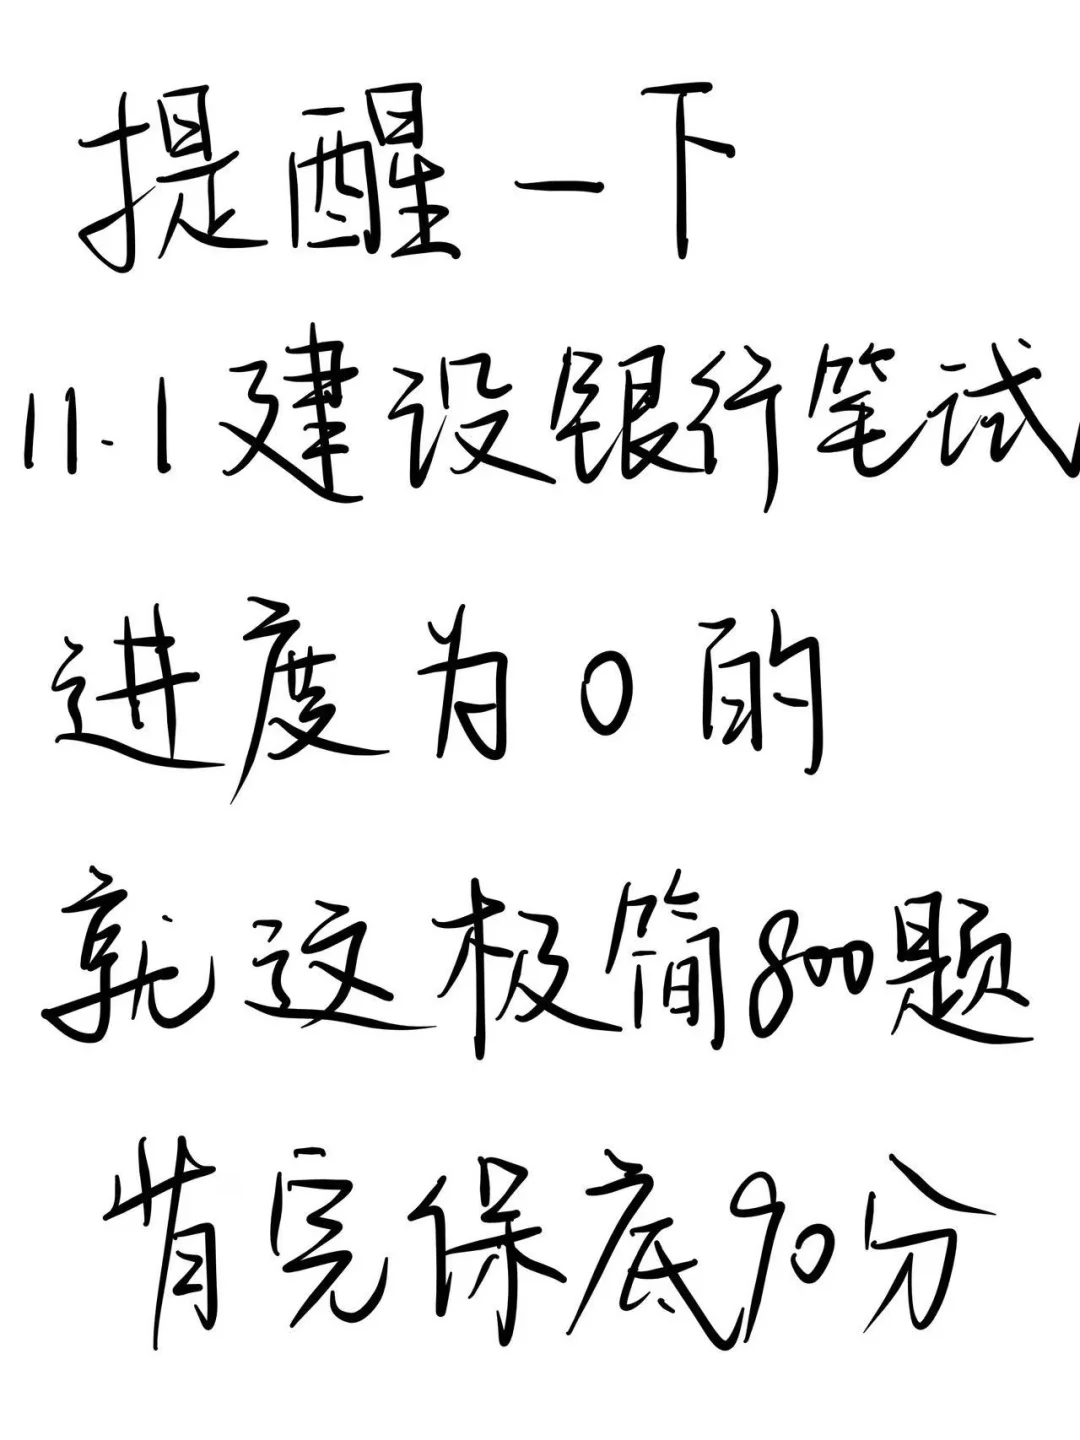 提醒一下
11.1建设银行笔试
进度为0的
就这极简800题
背完保底90分